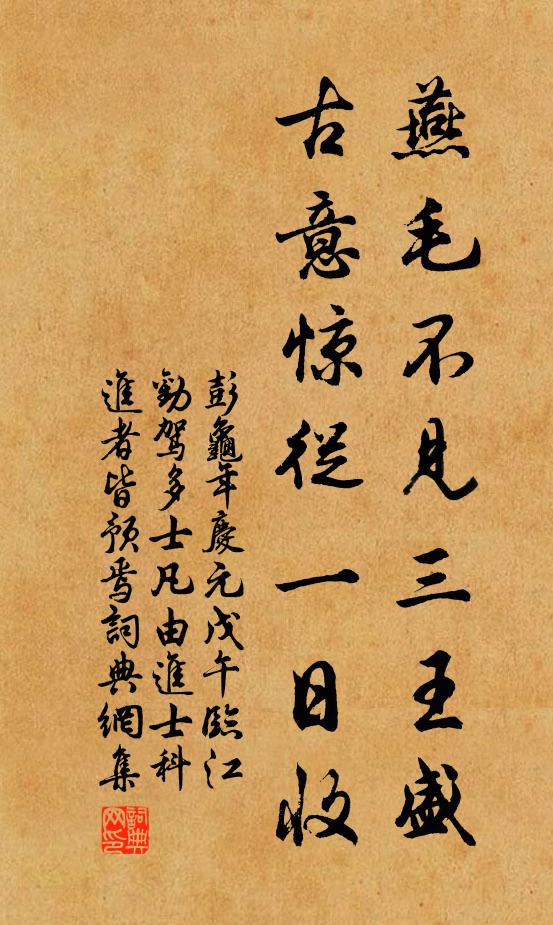 燕毛不见三王盛
古意惊從一日收
彭龜年慶元戊午臨江
勸駕多士凡由進士科
進者皆預焉詞典網集
詞典网印